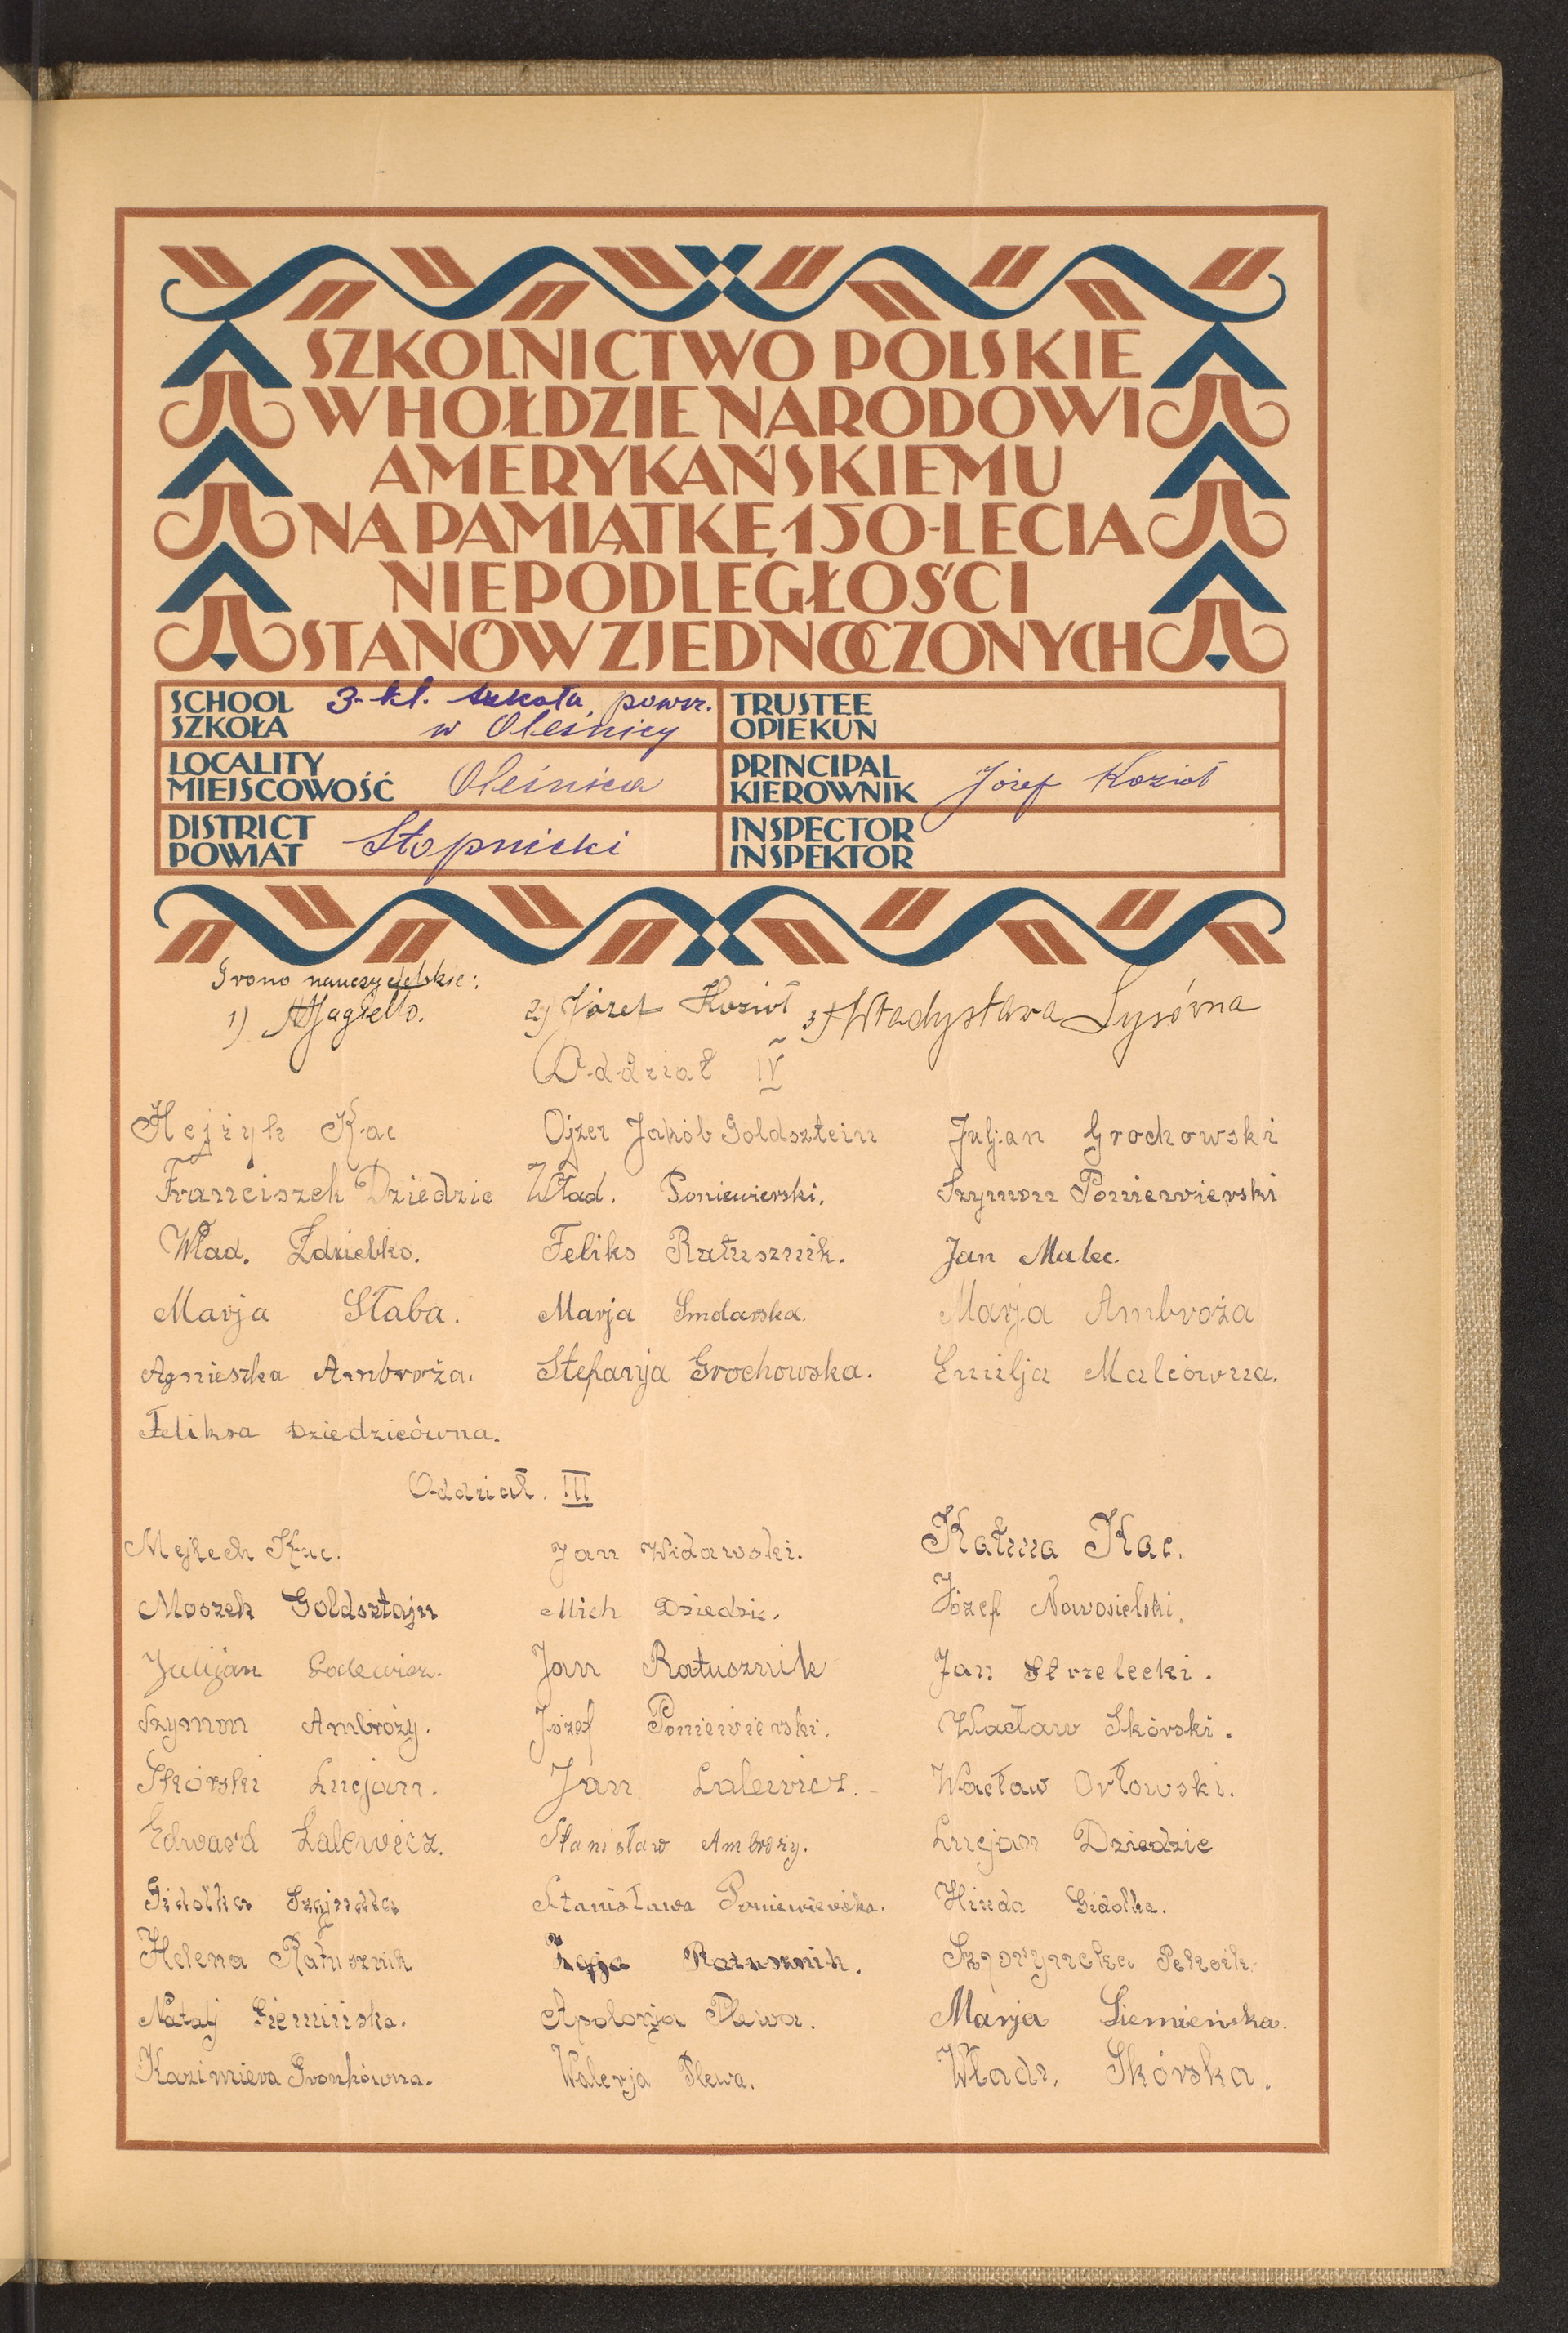 SZKOLNICTWO POLSKIE
W HOŁDZIE NARODOWI
AMERYKAŃSKIEMU
NA PAMIĄTKĘ 150-LECIA
NIEPODLEGŁOŚCI
STANÓW ZJEDNOCZONYCH
SCHOOL 3-kl. szkoła powsz.
SZKOŁA w Oleśnicy
TRUSTEE
OPIEKUN
LOCALITY
MIEJSCOWOŚĆ Oleśnica
PRINCIPAL
KIEROWNIK Józef Kozioł
DISTRICT
POWIAT Stopnicki
INSPECTOR
INSPEKTOR
Grono nauczycielskie:
1) Jagiełło. 2) Józef Kozioł 3) Władysława Lysówna
Oddział IV
Hejżyk Kac Ojzer Jakób Goldsztein Juljan Grochowski
Franciszek Dziedzic Wład. Poniewierski. Szymon Poniewierski
Wład. Zdziebko. Feliks Ratusznik. Jan Malec.
Marja Słaba. Marja Smolarska. Marja Ambroża
Agnieszka Ambroża. Stefanja Grochowska. Emilja Malcówna.
Feliksa Dziedzicówna.
Oddział. III
Mejlech Kac. Jan Widawski. Kac.
Moszek Goldsztajn Mich Dziedzic. Józef Nowosielski.
Julijan Jan Ratusznik Jan Strzelecki.
Szymon Ambroży. Józef Poniewierski. Wacław Skórski.
Skórski Lucjan. Jan Lalewicz. Wacław Orłowski.
Edward Lalewicz. Stanisław Ambroży. Lucjan Dziedzic
Gidołka Szajndla Stanisława Poniewierska. Hinda Gidołka.
Helena Ratusznik Ratusznik.
Natalj Siemińska. Apolonja Plewa. Marja Siemieńska.
Kazimiera Gronkówna. Walerja Plewa. Władz. Skórska.